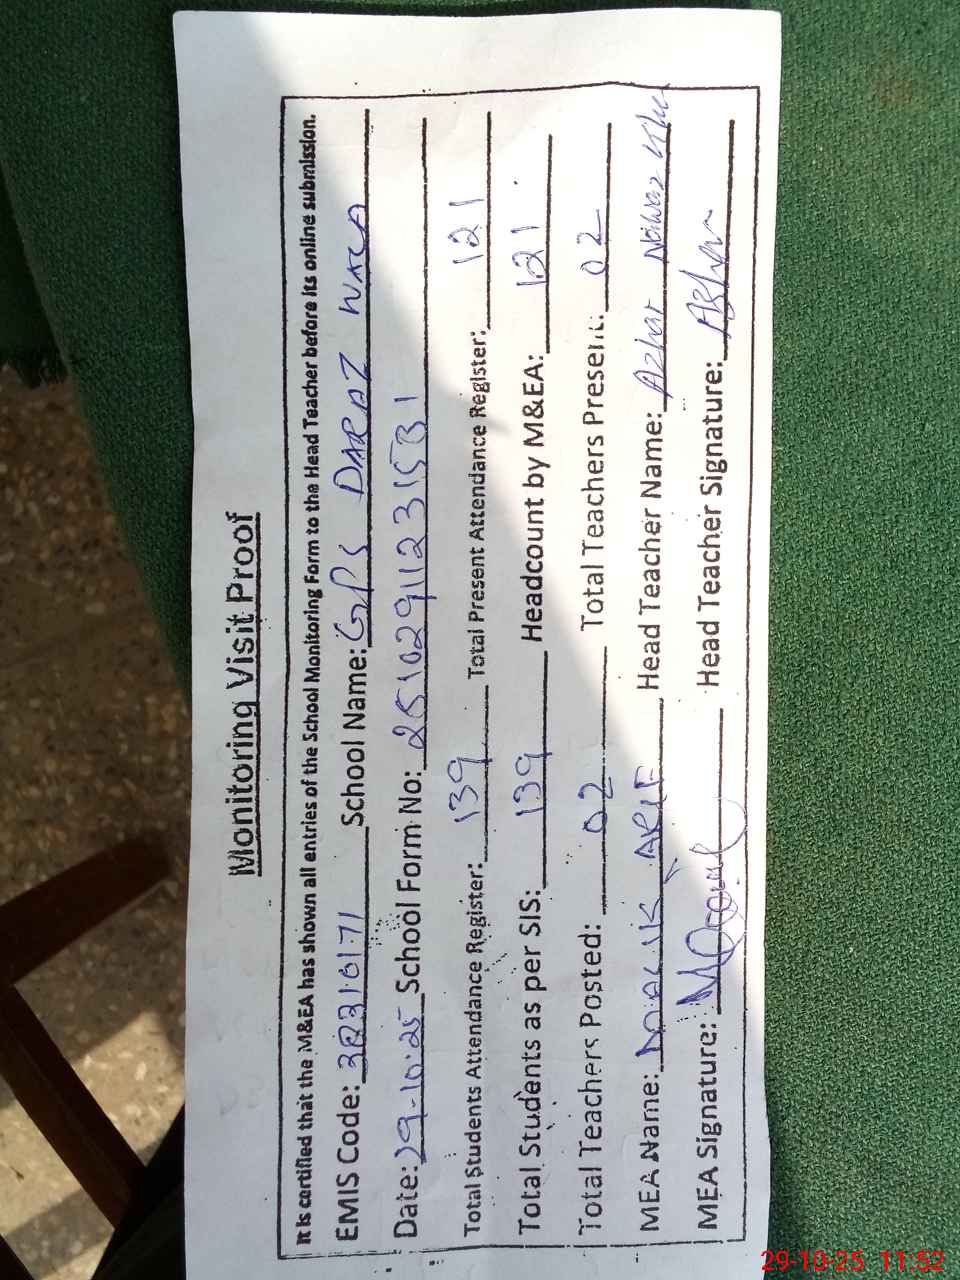 Monitoring Visit Proof
It is certified that the M&EA has shown all entries of the School Monitoring Form to the Head Teacher before its online submission.
EMIS Code: 38310171 School Name: GPS DARAZ WALA
Date: 29-10-25 School Form No: 251029112315B1
Total Students Attendance Register: 139 Total Present Attendance Register: 121
Total Students as per SIS: 139 Headcount by M&EA: 121
Total Teachers Posted: 02 Total Teachers Present: 02
MEA Name: ARIF Head Teacher Name: Azhar Nawaz
MEA Signature: Head Teacher Signature: Azhar
29-10-25 11:52